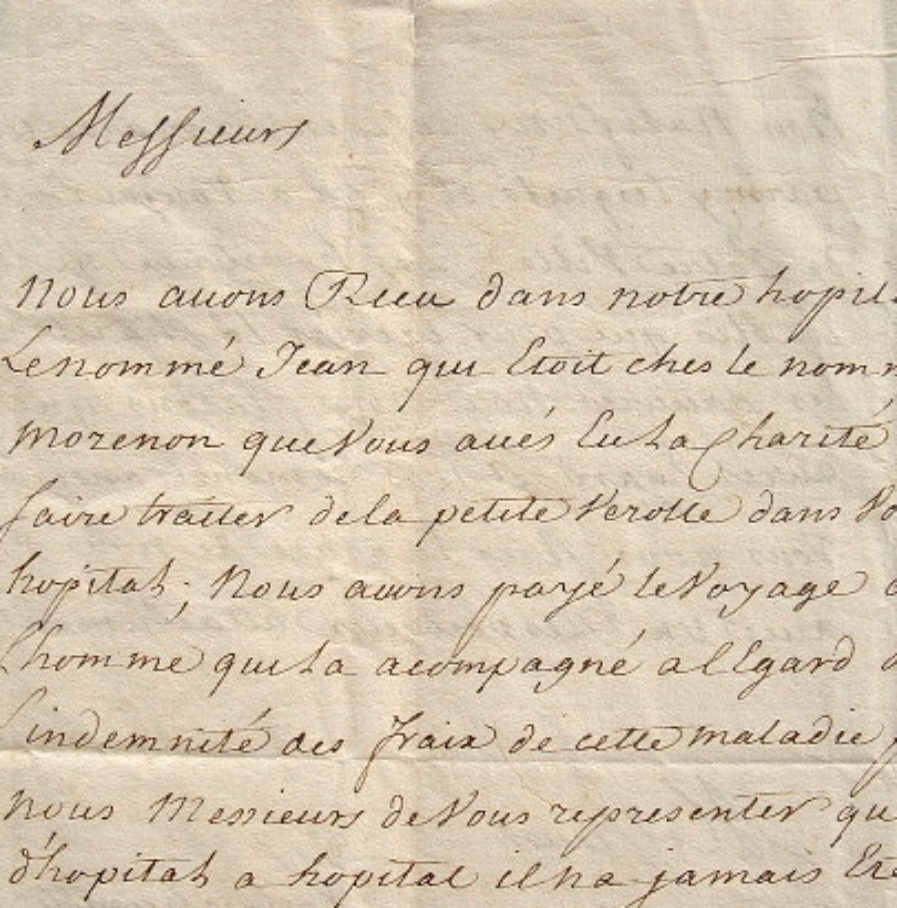 Messieurs
Nous avons Receu dans notre hopit
Le nommé Jean qui Etoit ches le nom
morenon que Vous avés Eu La Charité
faire traiter de la petite Verolle dans Vo
hopital; Nous avons payé le Voyage d
L'homme qui La acompagné a l'Egard d
L'indemnité des fraix de cette maladie
nous Messieurs de Vous representer qu
d'hopital a hopital il na jamais Eté